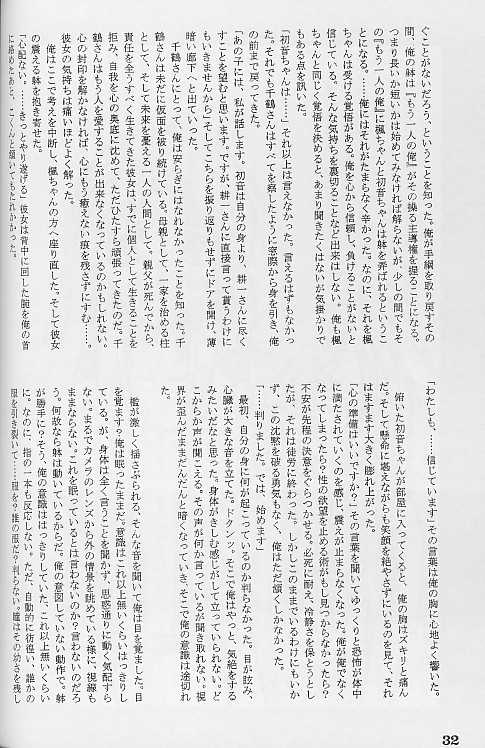 ぐことがないだろう、ということを知った。俺が手綱を取り戻すその
間、俺の躰は『もう一人の俺』がその操る主導権を握ることになる。
つまり長いか短いかは始めてみなければ解らないが、少しの間でもそ
の『もう一人の俺』に楓ちゃんと初音ちゃんは躰を弄ばれるというこ
とになる。……俺にはそれがたまらなく辛かった。なのに、それを楓
ちゃんは受ける覚悟がある。俺を心から信頼し、負けることがないと
信じている。そんな気持ちを裏切ることなど出来はしない。俺も楓
ちゃんと同じく覚悟を決めると、あまり聞きたくはないが気掛かりで
もある点を訊いた。
「初音ちゃんは……」それ以上は言えなかった。言えるはずもなかっ
た。それでも千鶴さんはすべてを察したように窓際から身を引き、俺
の前まで戻ってきた。
「あの子には、私が話します。初音は自分の身より、耕一さんに尽く
すことを望むと思います。ですが、耕一さんに直接言って貰うわけに
もいきませんから」そしてこちらを振り返りもせずにドアを開け、薄
暗い廊下へと出ていった。
　千鶴さんにとって、俺は安らぎにはなれなかったことを知った。千
鶴さんは未だに仮面を被り続けている。母親として、一家を治める柱
として、そして未来を憂える一人の人間として。親父が死んでから、
責任を全うすべく生きてきた彼女は、すでに個人として生きることを
拒み、自我を心の奥底に秘めて、ただひたすら頑張ってきたのだ。千
鶴さんはもう人を愛することが出来なくなっているのかもしれない。
心の封印を解かなければ、心にもう癒えない痕を残さずにすむ……。
彼女の気持ちは痛いほどよく解った。
　俺はここで考えを中断し、楓ちゃんの方へ座り直した。そして彼女
の震える躰を抱き寄せた。
「心配ない。……きっとやり遂げる」彼女は背中に回した腕を俺の首
に絡めたあと、こくんと頷いてもたれかかった。
「わたしも、……信じています」その言葉は俺の胸に心地よく響いた。
　俯いた初音ちゃんが部屋に入ってくると、俺の胸はズキリと痛ん
だ。そして懸命に堪えながらも笑顔を絶やさずにいるのを見て、それ
はますます大きく膨れ上がった。
「心の準備はいいですか？」その言葉を聞いてゆっくりと恐怖が体中
に満たされていくのを感じ、震えが止まらなくなった。俺が俺でなく
なってしまったら？性の欲望を止める術がもし見つからなかったら？
不安が先程の決意をぐらつかせる。必死に耐え、冷静さを保とうとし
たが、それは徒労に終わった。しかしこのままでいるわけにもいか
ず、この沈黙を破る勇気もなく、俺はただ頷くしかなかった。
「……判りました。では、始めます」
　最初、自分の身に何が起こっているのか判らなかった。目が眩み、
心臓が大きな音を立てた。ドクンッ。そこで俺はやっと、気絶をする
みたいだなと思った。身体がきしむ感じがして立っていられない。ど
こからか声が聞こえる。その声が何か言っているが聞き取れない。視
界が歪んだままだんだんと暗くなっていき、そこで俺の意識は途切れ
　檻が激しく揺さぶられる、そんな音を聞いて俺は目を覚ました。目
を覚ます？俺は眠ったままだ。意識はこれ以上無いくらいはっきりし
ている。が、身体は全く言うことを聞かず、思惑通りに動く気配すら
ない。まるでカメラのレンズから外の情景を眺めている様に、視線も
ままならない。これを眠っているとは言わないのか？言わないのだろ
う。何故なら躰は動いているからだ。俺の意図していない動作で。躰
が勝手に？そう、俺の意識ははっきりしていた、これ以上無いくらい
に。なのに、指の一本も反応しない。ただ、自動的に彷徨い、誰かの
32